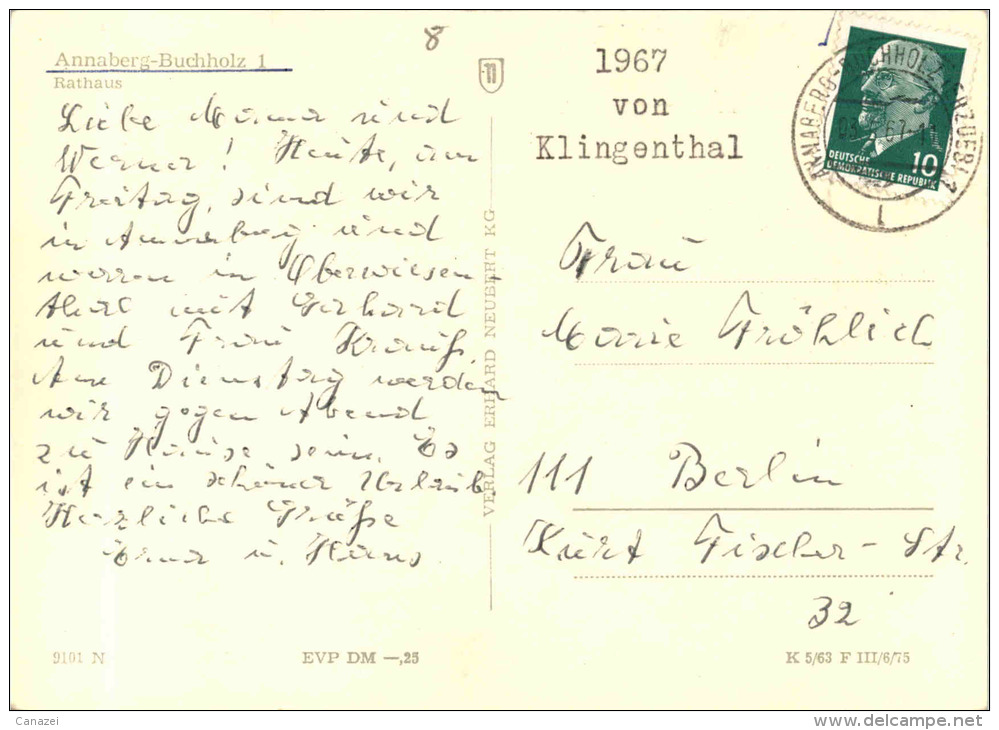 8
Annaberg-Buchholz 1
Rathaus
Liebe Mama und
Werner! Heute, am
Freitag, sind wir
in Annaberg und
waren in Oberwiesen-
thal mit Gerhard
und Frau Krauß.
Am Dienstag werden
wir gegen Abend
zu Hause sein. Es
ist ein schöner Urlaub.
Herzliche Grüße
Erna u. Hans
9101 N
EVP DM —,25
VERLAG ERHARD NEUBERT KG
1967
von
Klingenthal
ANNABERG-BUCHHOLZ
1
DEUTSCHE
DEMOKRATISCHE REPUBLIK
10
Frau
Marie Fröhlich
111 Berlin
Kurt Fischer-Str.
32
K 5/63 F III/6/75
Canazei
delcampe.net